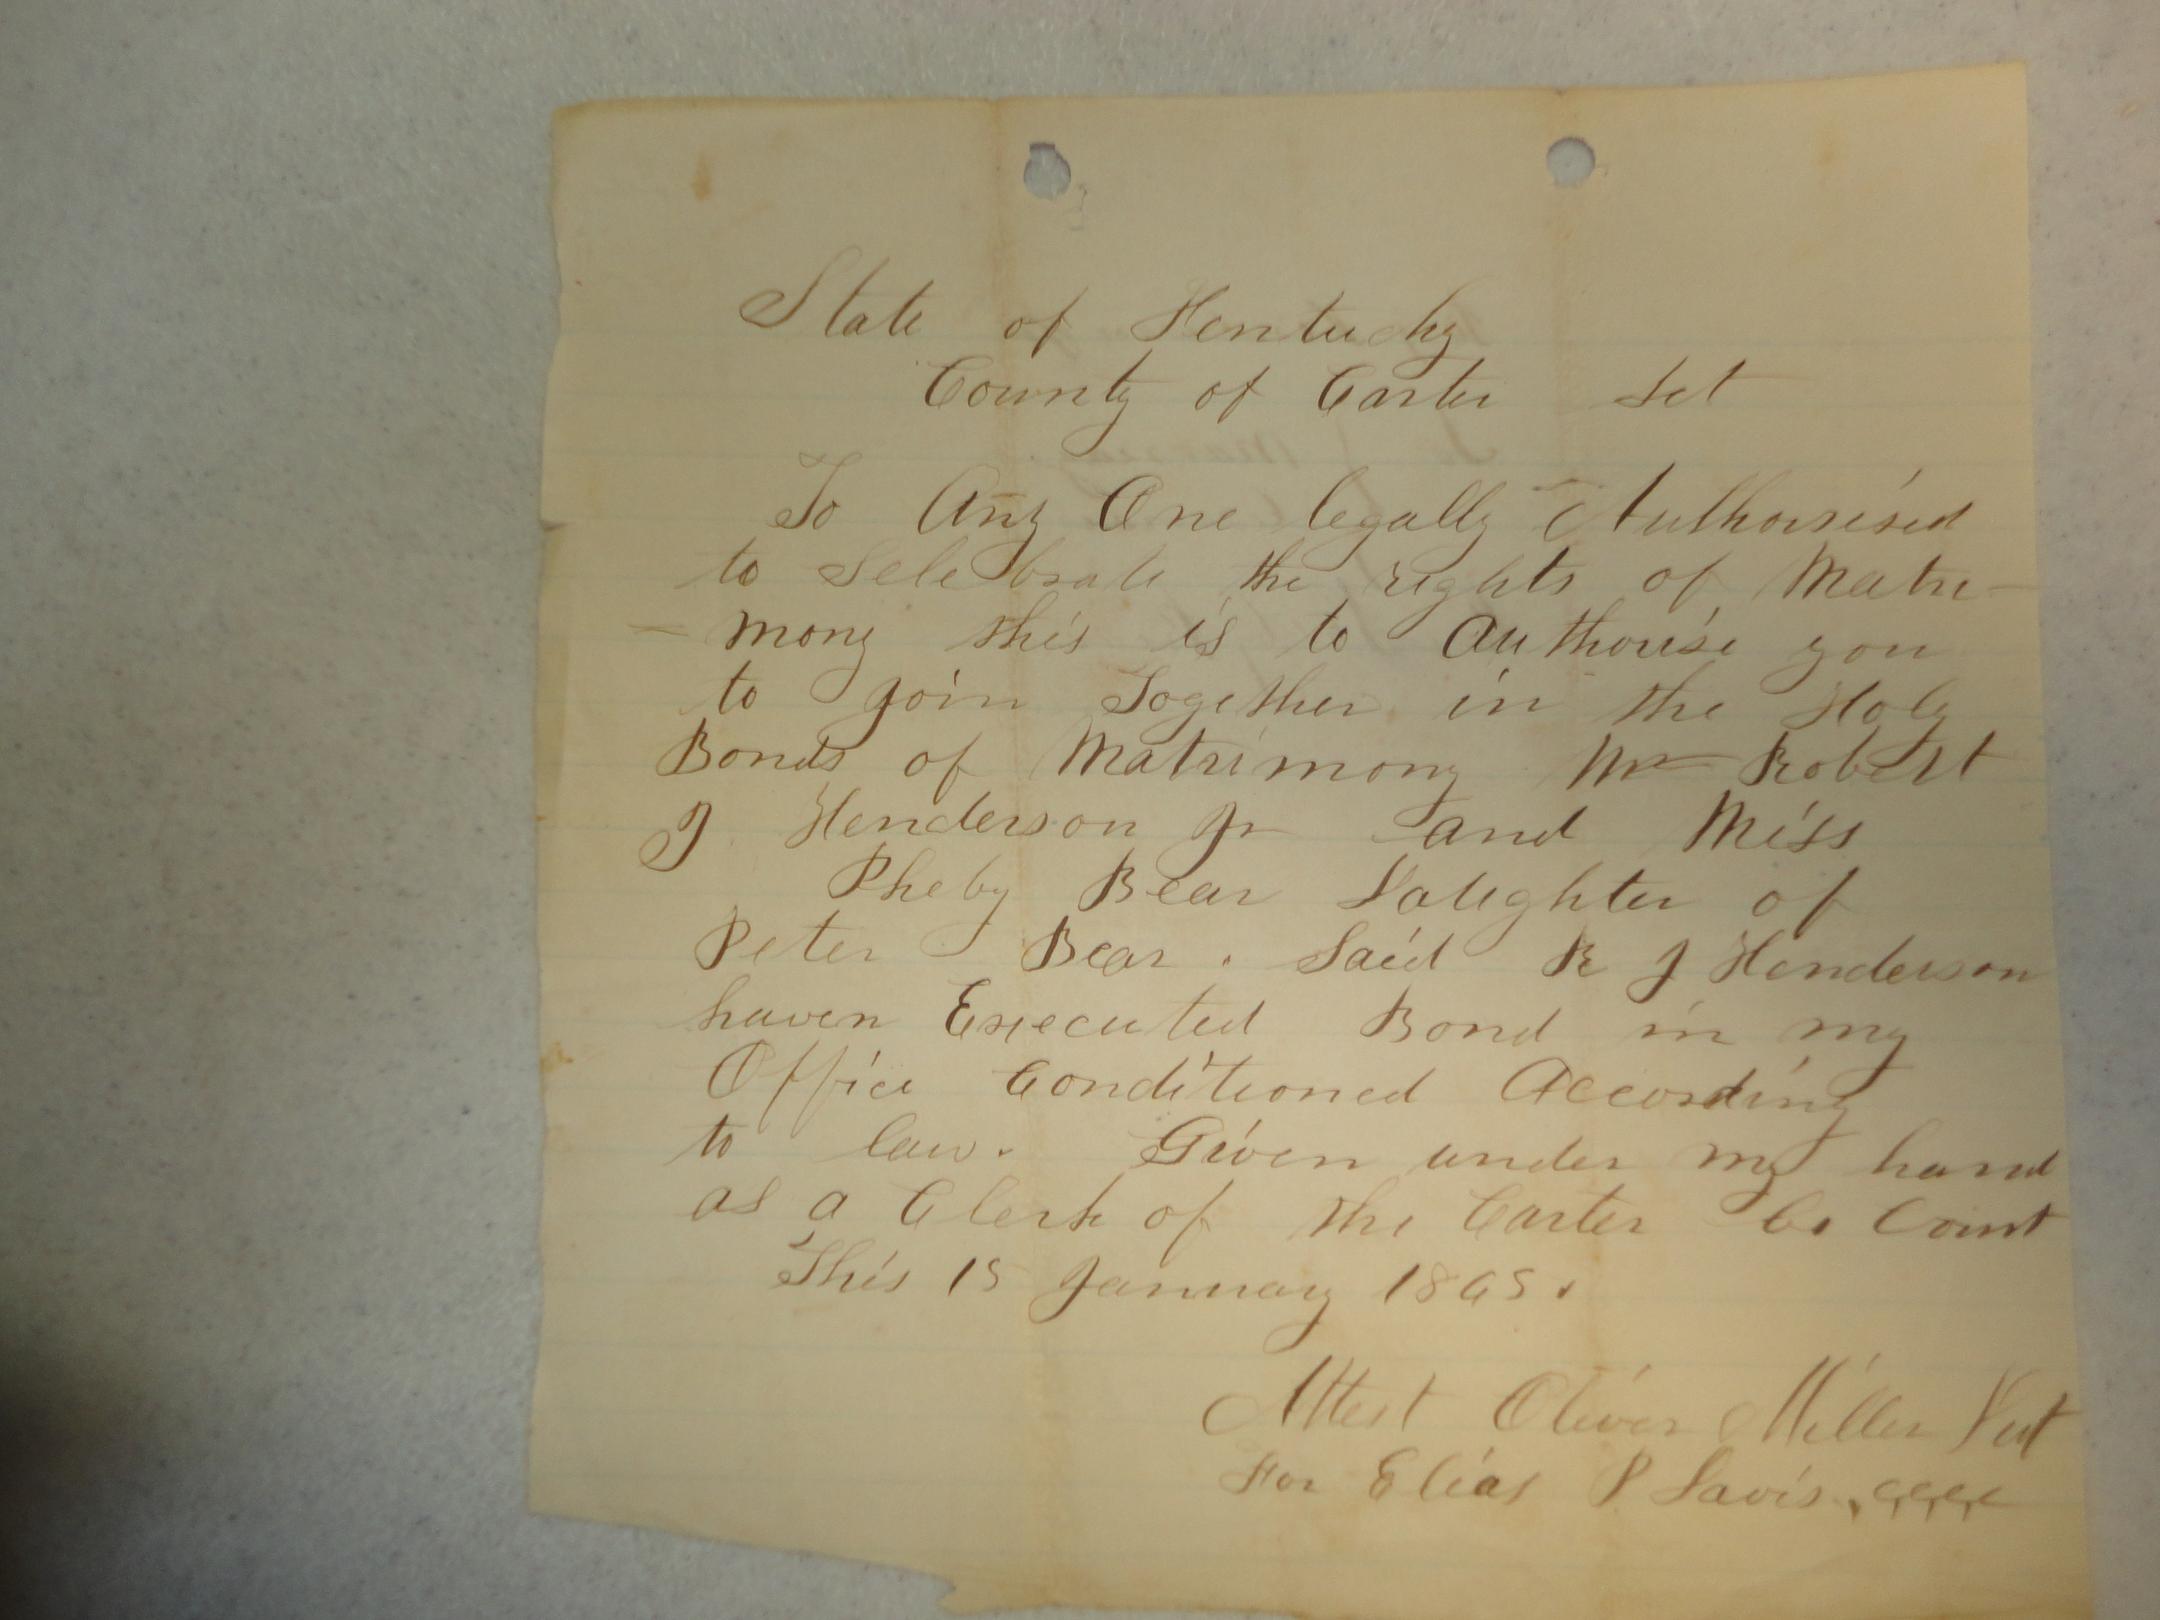 State of Kentucky
County of Carter Sct
To Any One legally Authorised
to Selebrate the rights of Matri-
-mony this is to authorise you
to join Together in the Holy
Bonds of Matrimony Mr Robert
J Henderson Jr and Miss
Pheby Bear Daughter of
Peter Bear. Said R J Henderson
haven Executed Bond in my
Office Conditioned According
to law. Given under my hand
as a Clerk of the Carter Co Court
This 15 January 1865.
Attest Oliver Miller Dept
For Elias P Davis, CCCC